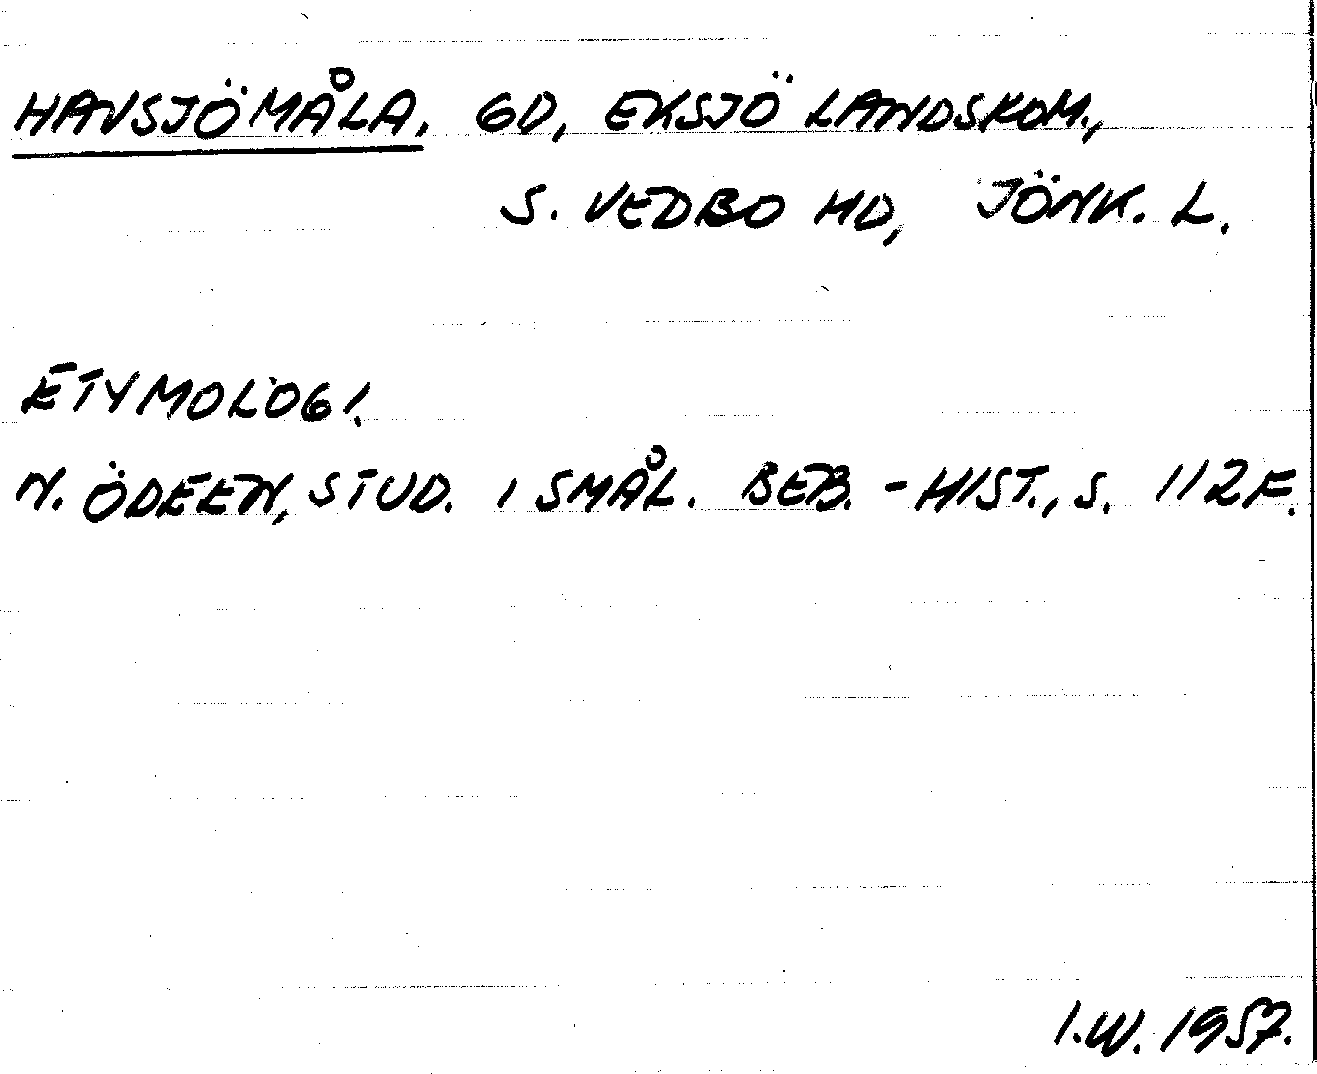 HAVSJÖMÅLA, GD, EKSJÖ LANDSKOM.,
S. VEDBO HD, JÖNK. L.
ETYMOLOGI.
N. ÖDEEN, STUD. I SMÅL. BEB.-HIST., S. 112F.
I.W. 1957.